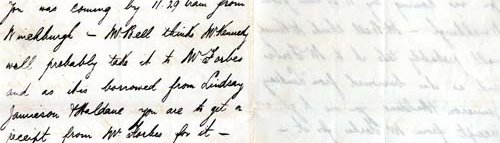 you was coming by 11.29 train from
Winchburgh – Mr Bell thinks Mr Kennedy
will probably take it to Mr Forbes
and as it is borrowed from Lindsay
Jamieson & Haldane you are to get a
receipt from Mr Forbes for it –